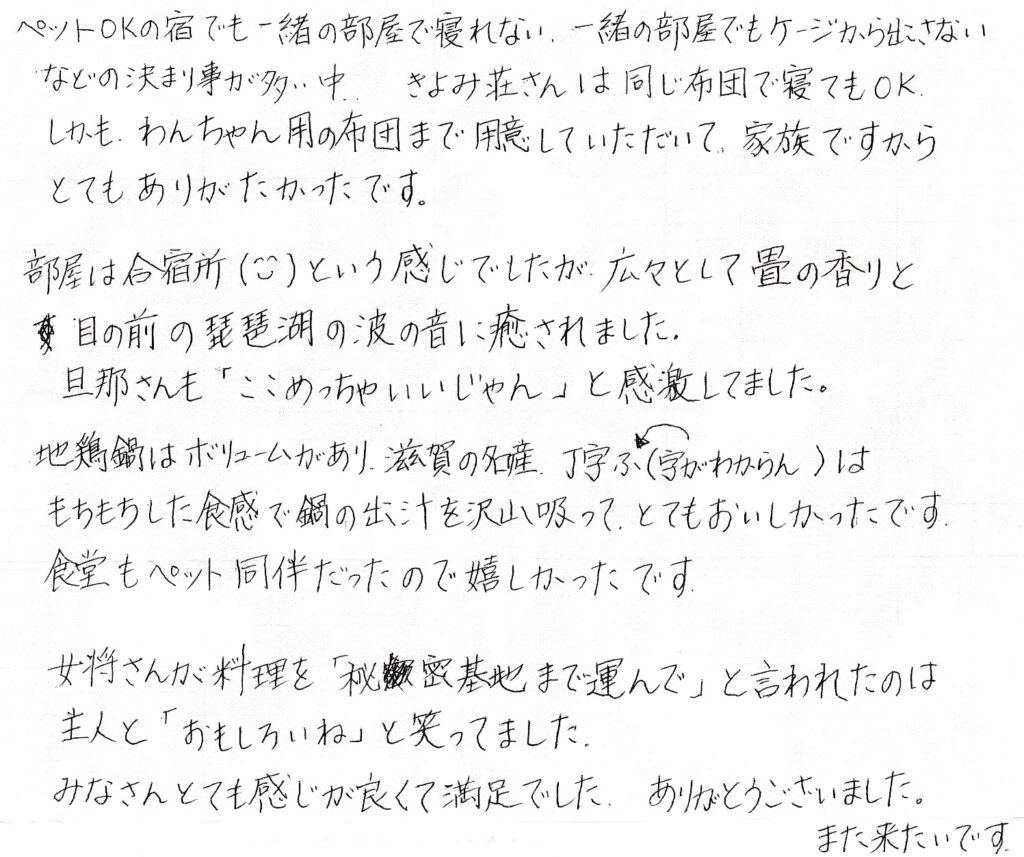 ペットOKの宿でも一緒の部屋で寝れない、一緒の部屋でもケージから出さない
などの決まり事が多い中、きよみ荘さんは同じ布団で寝てもOK、
しかも、わんちゃん用の布団まで用意していただいて、家族ですから
とてもありがたかったです。
部屋は合宿所(◡̈)という感じでしたが、広々として畳の香りと
目の前の琵琶湖の波の音に癒されました。
旦那さんも「ここめっちゃいいじゃん」と感激してました。
地鶏鍋はボリュームがあり、滋賀の名産、丁字ふ(字がわからん)は
もちもちした食感で鍋の出汁を沢山吸って、とてもおいしかったです。
食堂もペット同伴だったので嬉しかったです。
女将さんが料理を「秘密基地まで運んで」と言われたのは
主人と「おもしろいね」と笑ってました。
みなさんとても感じが良くて満足でした。ありがとうございました。
また来たいです。